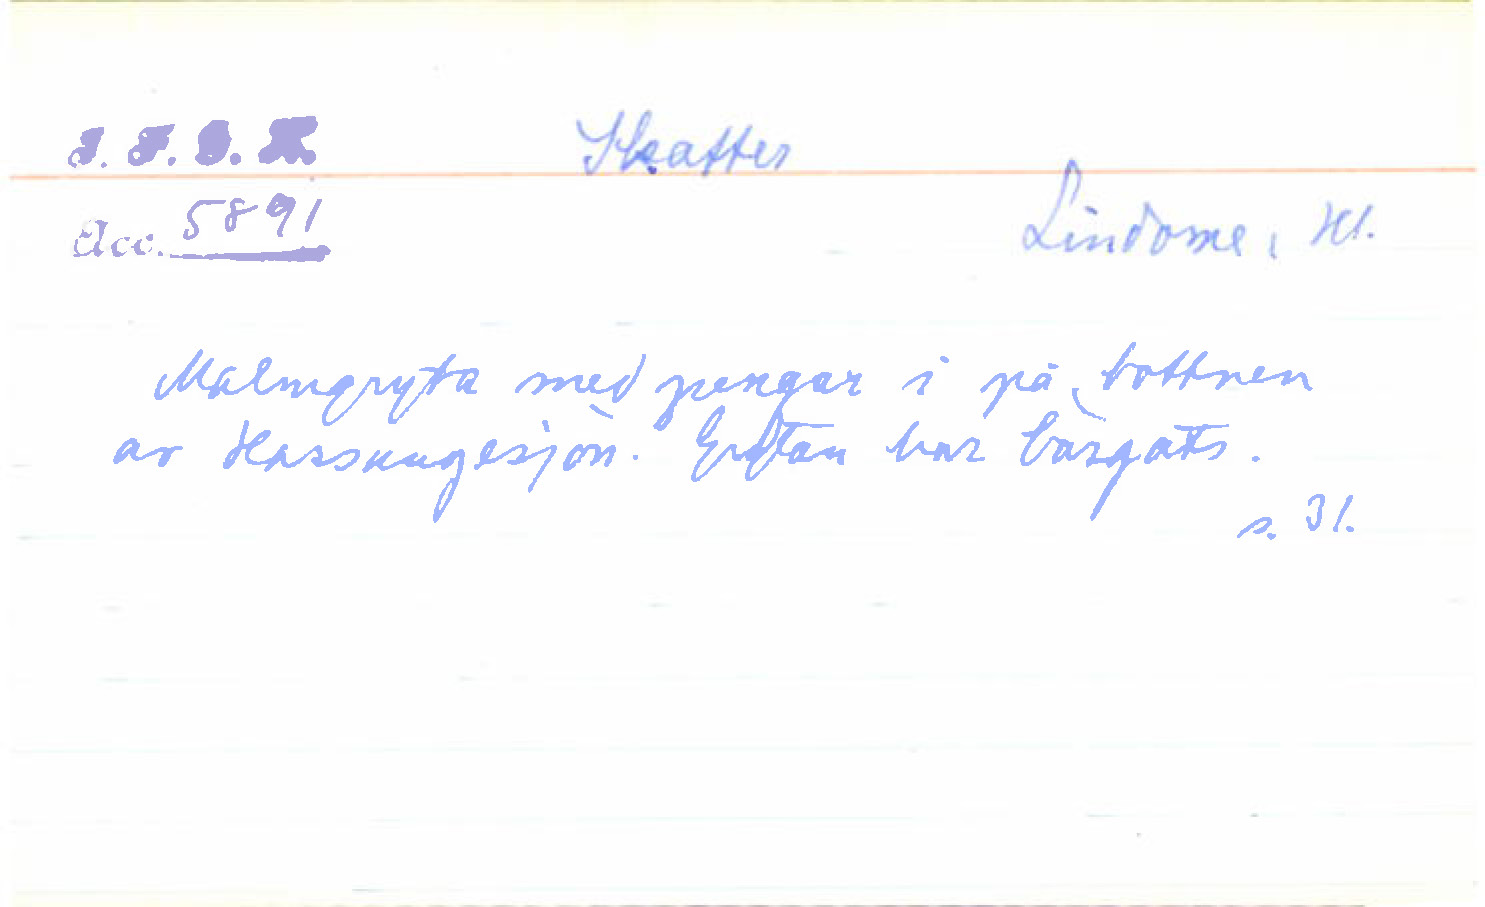 I. F. G. H. Skatter
Acc. 5891 Lindome, Hl.
Malmgryta med pengar i på bottnen
av Hassungesjön. Grytan har bärgats.
s. 31.